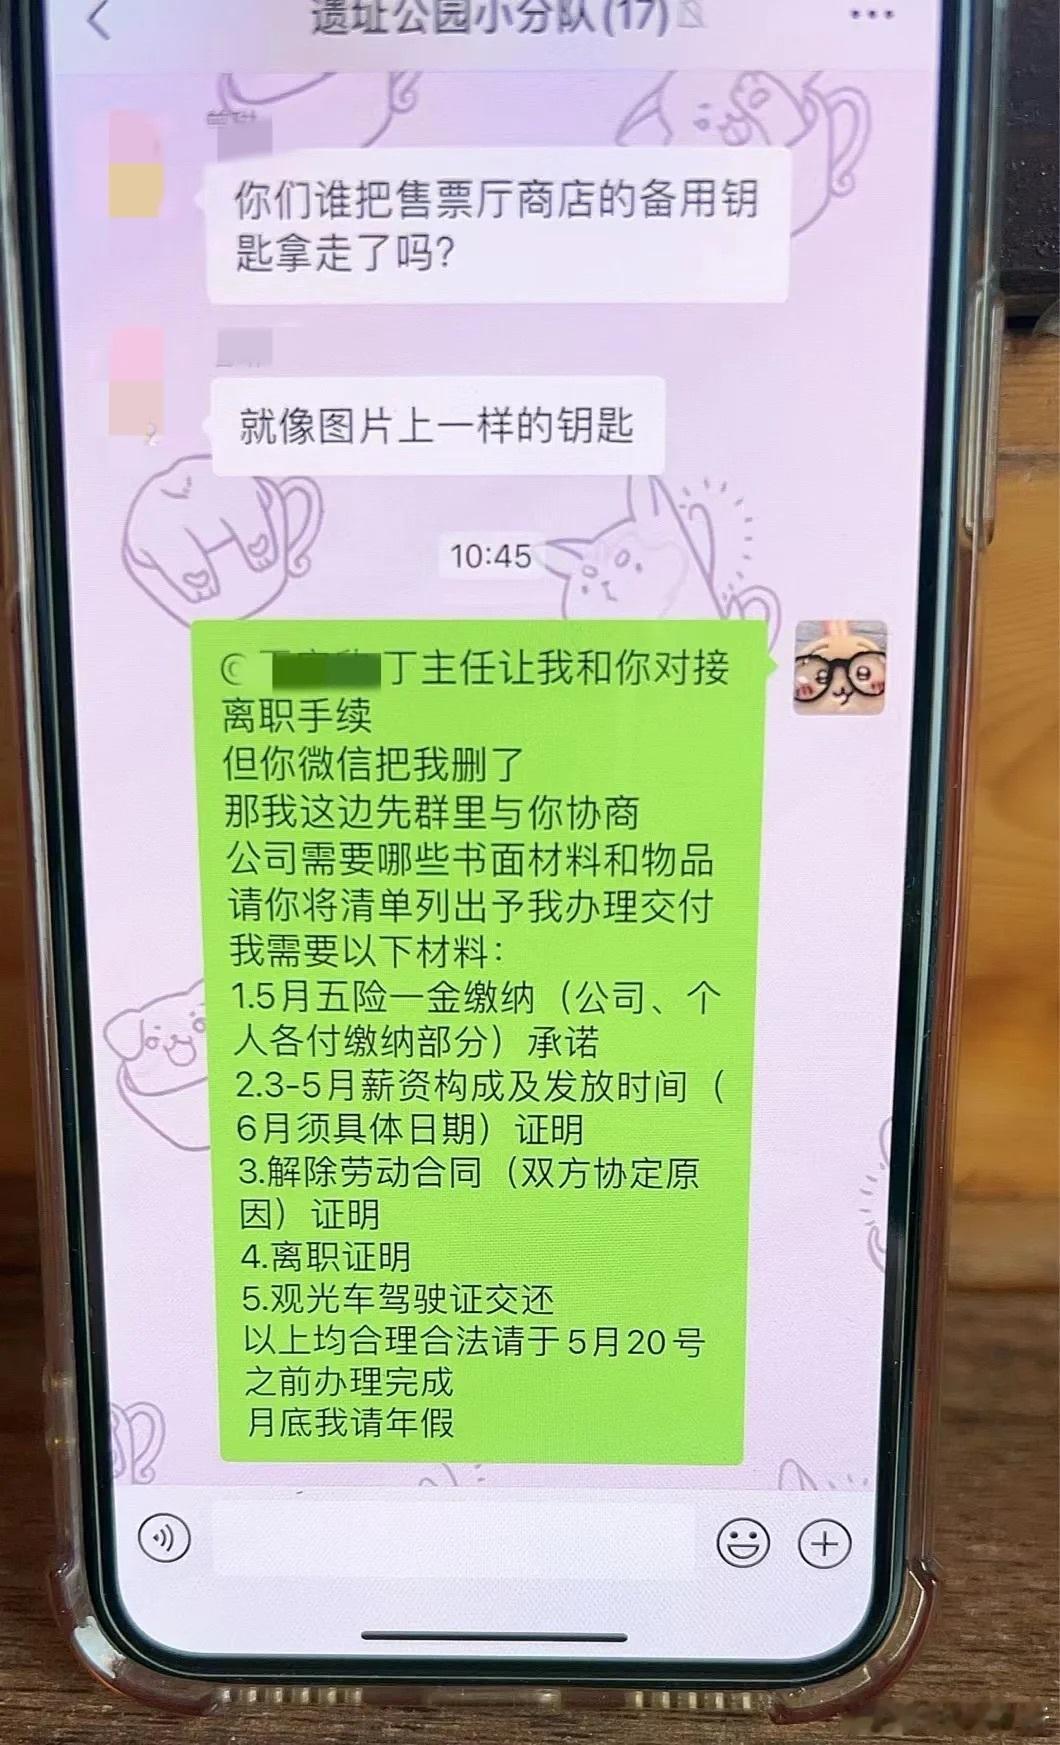 遗址公园小分队(17)
你们谁把售票厅商店的备用钥
匙拿走了吗?
就像图片上一样的钥匙
10:45
@ 丁主任让我和你对接
离职手续
但你微信把我删了
那我这边先群里与你协商
公司需要哪些书面材料和物品
请你将清单列出予我办理交付
我需要以下材料：
1.5月五险一金缴纳（公司、个
人各付缴纳部分）承诺
2.3-5月薪资构成及发放时间（
6月须具体日期）证明
3.解除劳动合同（双方协定原
因）证明
4.离职证明
5.观光车驾驶证交还
以上均合理合法请于5月20号
之前办理完成
月底我请年假